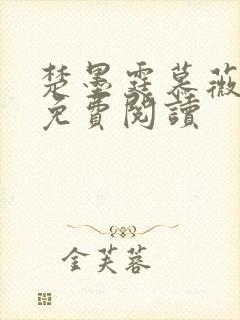 楚墨霆慕薇
免費閱讀
金芙蓉